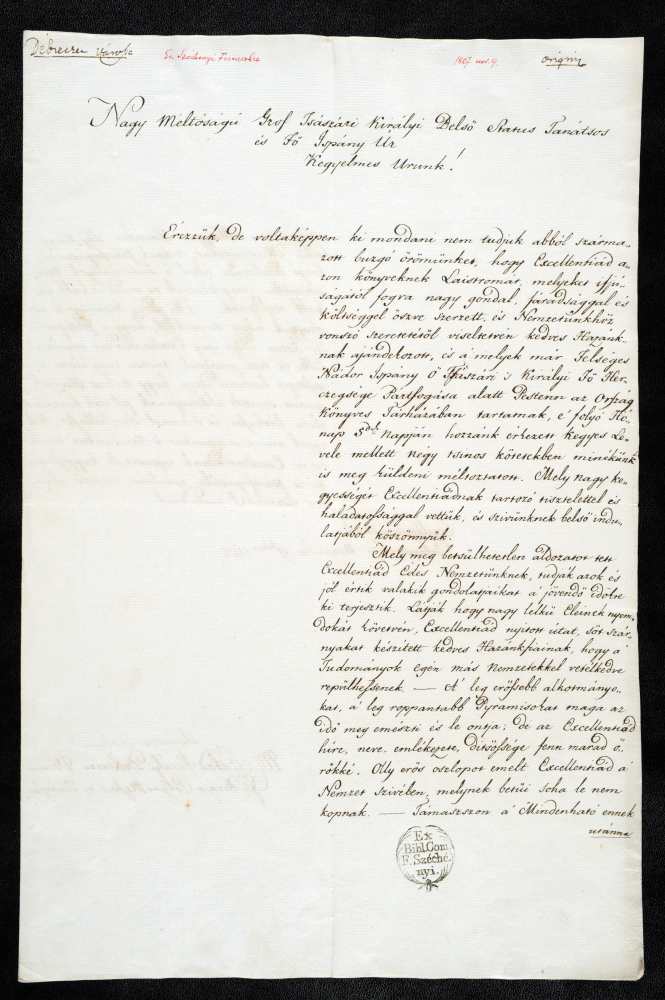 Debreczen Városa
Gr. Széchényi Ferencznek
1807 nov. 9.
origin.
Nagy Méltóságú Gróf Tsászári Királyi Belső Status Tanátsos
és Fő Ispány Úr
Kegyelmes Urunk!
Érezzük, de voltaképpen ki mondani nem tudjuk abból szárma-
zott buzgó örömünket, hogy Excellentiád a-
zon könyveknek Laistromát, melyeket ifjú-
ságától fogva nagy gondal, fáradsággal és
költséggel öszve szerzett, és Nemzetünkhöz
vonszó szeretetétől viseltetvén kedves Hazánk-
nak ajándékozott, is á melyek már Felséges
Nádor Ispány Ő Tsászári 's Királyi Fő Her-
czegsége Pártfogása alatt Pestenn az Ország
Könyves Tárházában tartatnak, e' folyó Hó-
nap 5dik Napján hozzánk érkezett Kegyes Le-
vele mellett négy tsinos kötetekben minékünk
is meg küldeni méltoztatott. Mely nagy ke-
gyességét Excellentiádnak tartozó tisztelettel és
háladatossággal vettük, és szivünknek belső indu-
latjából köszönnyük.
Mely meg betsülhetetlen áldozatot tett
Excellentiád Édes Nemzetünknek, tudják azok és
jól értik valakik gondolatjaikat á jövendő időkre
ki terjesztik. Látják hogy nagy lelkű Eleinek nyom-
dokát követvén, Excellentiád nyitott útat, sőt szár-
nyakat készített kedves Hazánkfiainak, hogy á
Tudományok egén más Nemzetekkel vetélkedve
repülhessenek — A' leg erőssebb alkotmányo-
kat, á leg roppantabb Pyramisokat maga az
idő meg emészti és le ontja; de az Excellentiád
híre, neve, emlékezete, ditsőssége fenn marad ö-
rökké. Olly erős oszlopot emelt Excellentiád á
Nemzet szivében, melynek betűi soha le nem
kopnak. — Támaszszon á Mindenható ennek
utánna
Ex
Bibl.Com.
F. Széché-
nyi.